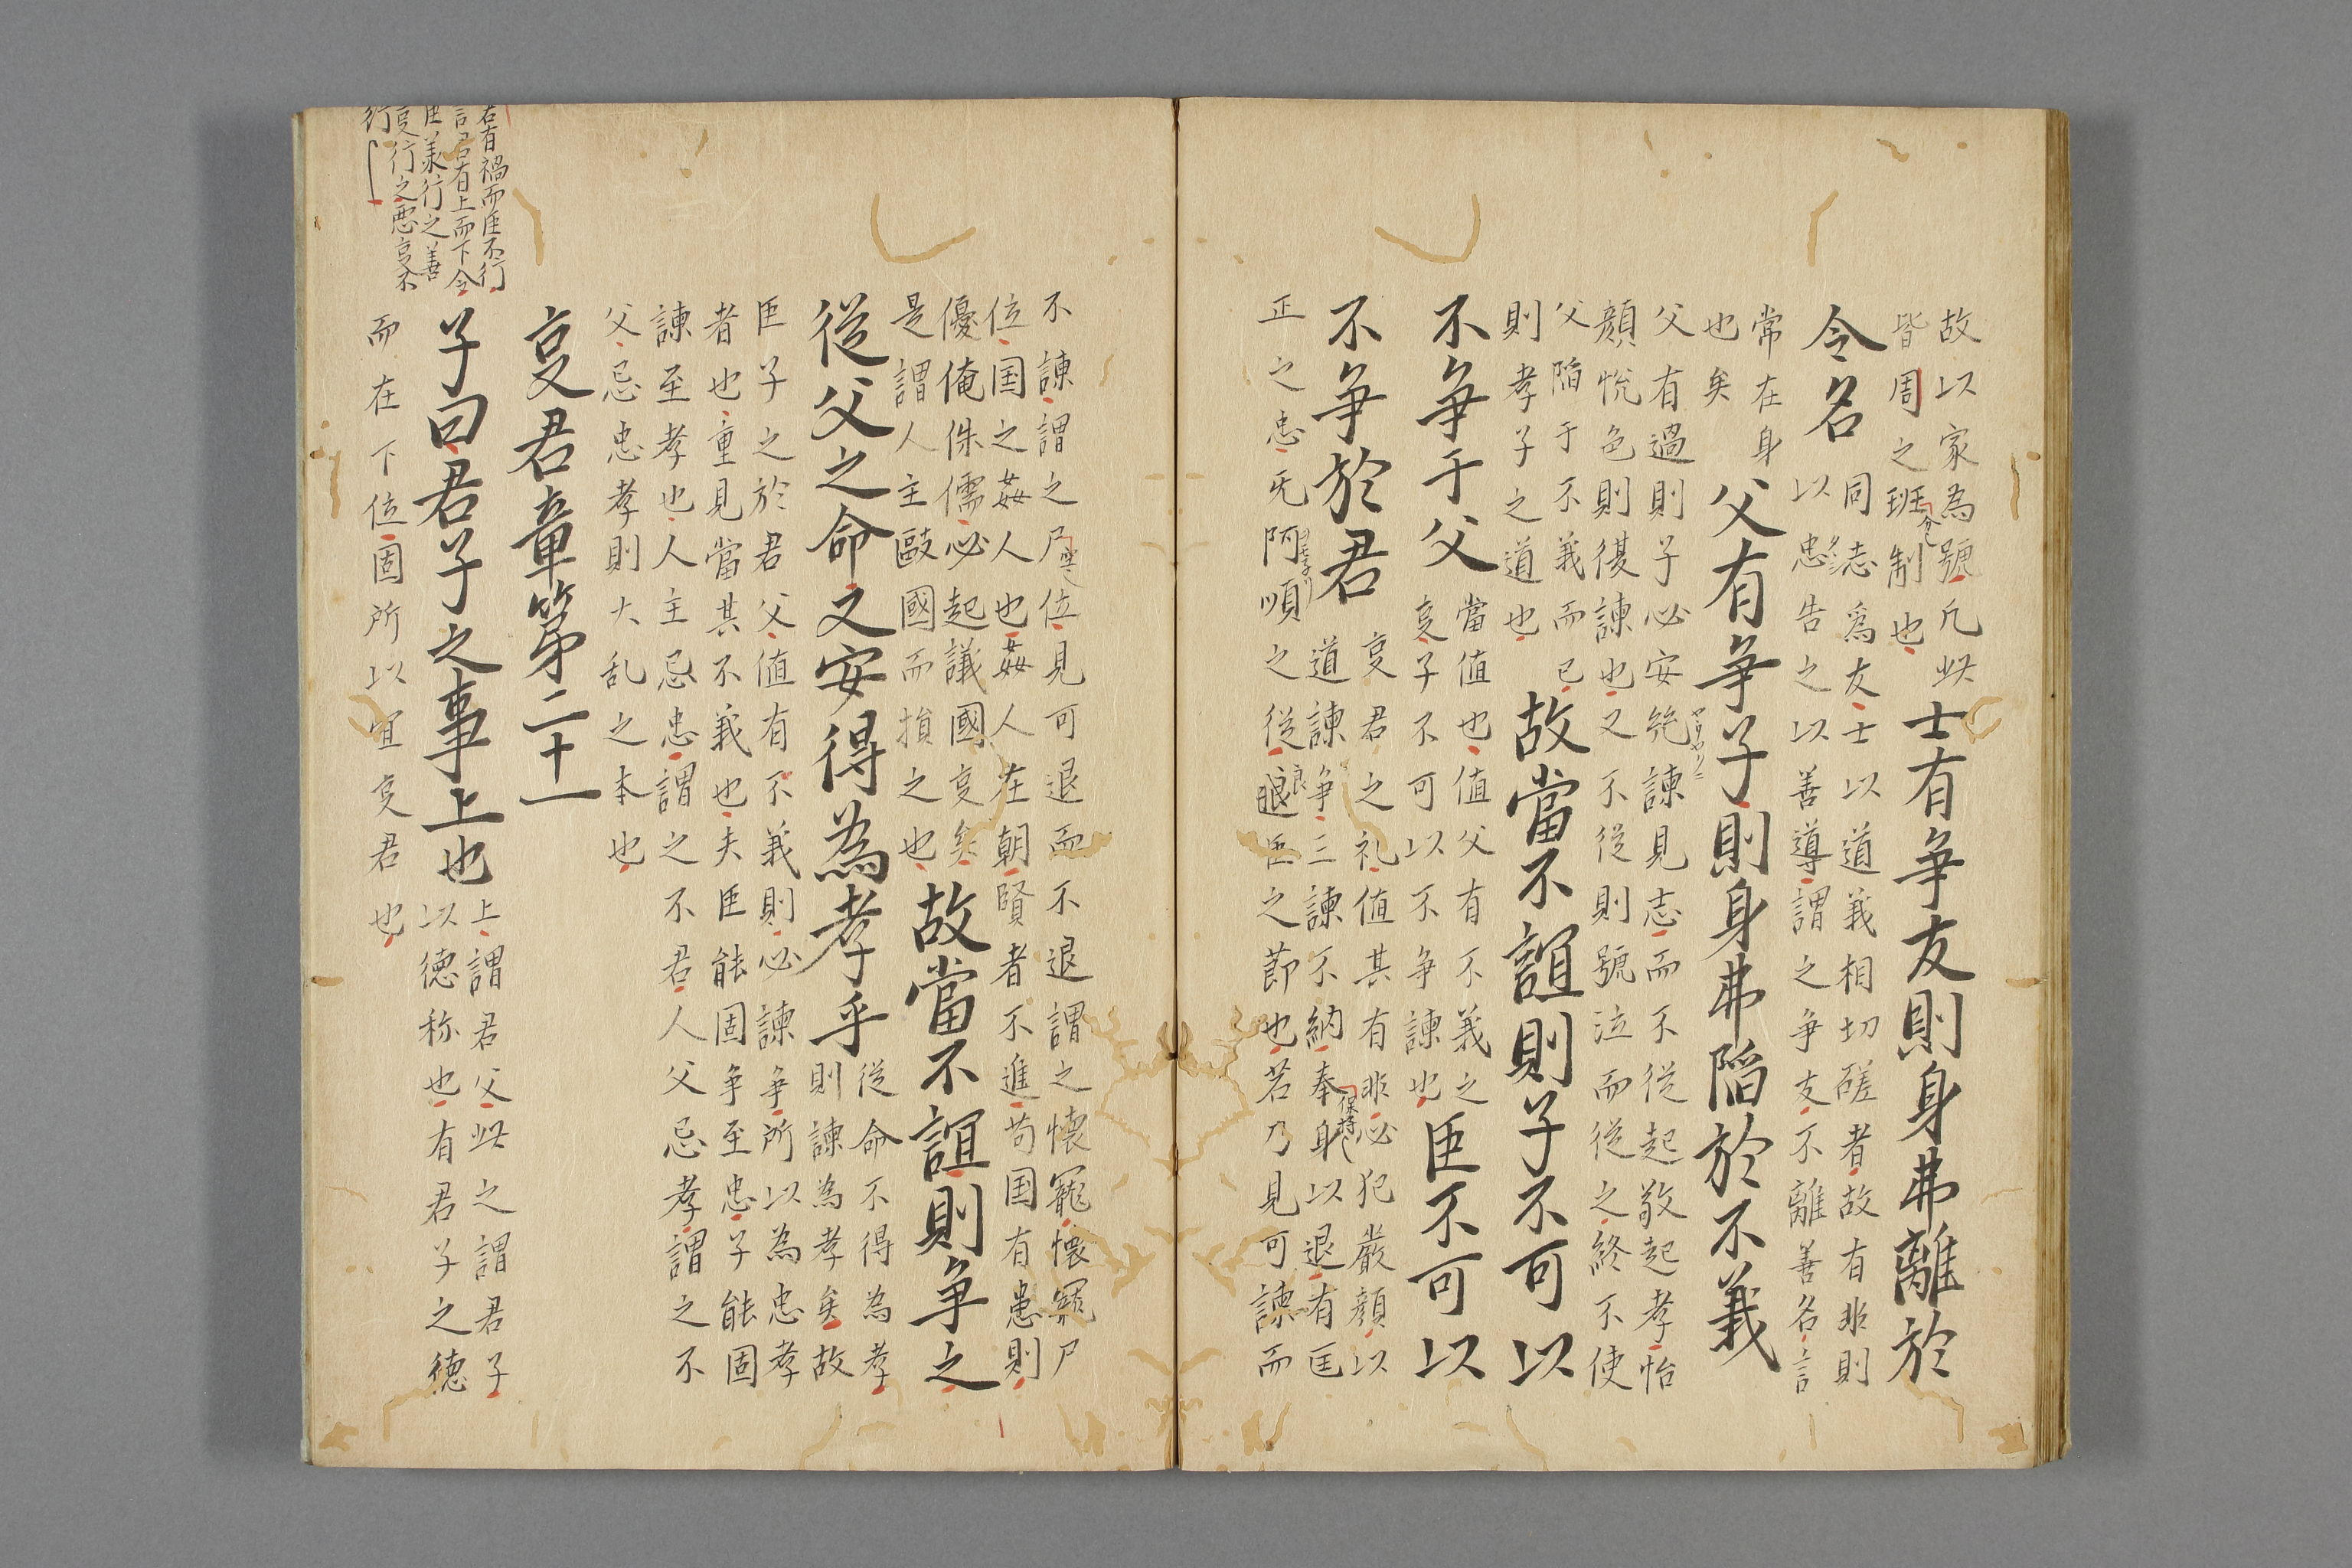 故以家為號凡此
皆周之班制也
士有争友則身弗離於
令名
同志爲友士以道義相切磋者故有非則
以忠告之以善導謂之争友不離善名言
常在身
也矣
父有争子則身弗陷於不義
父有過則子必安㡬諫見志而不從起敬起孝怡
顔悅色則復諫也又不從則號泣而從之終不使
父陷于不義而已
則孝子之道也
故當不誼則子不可以
不争于父
當值也值父有不義之
㕝子不可以不争諫也
臣不可以
不争於君
㕝君之礼值其有非必犯嚴顔以
道諫争三諫不納奉身以退有匡
保持
正之忠旡阿順之從良臣之節也若乃見可諫而
不諫謂之尸位見可退而不退謂之懐寵懐寵尸
位国之姦人也姦人在朝賢者不進苟国有患則
優俺侏儒必起議國㕝矣
是謂人主敺國而損之也
故當不誼則争之
從父之命又安得為孝乎
從命不得為孝
則諫為孝矣故
臣子之於君父值有不義則必諫争所以為忠孝
者也重見當其不義也夫臣能固争至忠子能固
諫至孝也人主忌忠謂之不君人父忌孝謂之不
父忌忠孝則大乱之本也
㕝君章第二十一
子曰君子之事上也
上謂君父此之謂君子
以徳称也有君子之徳
而在下位固所以宜㕝君也
君有禍而臣不行
言君有上而下令
臣羕行之善
㕝行之悪㕝不
行